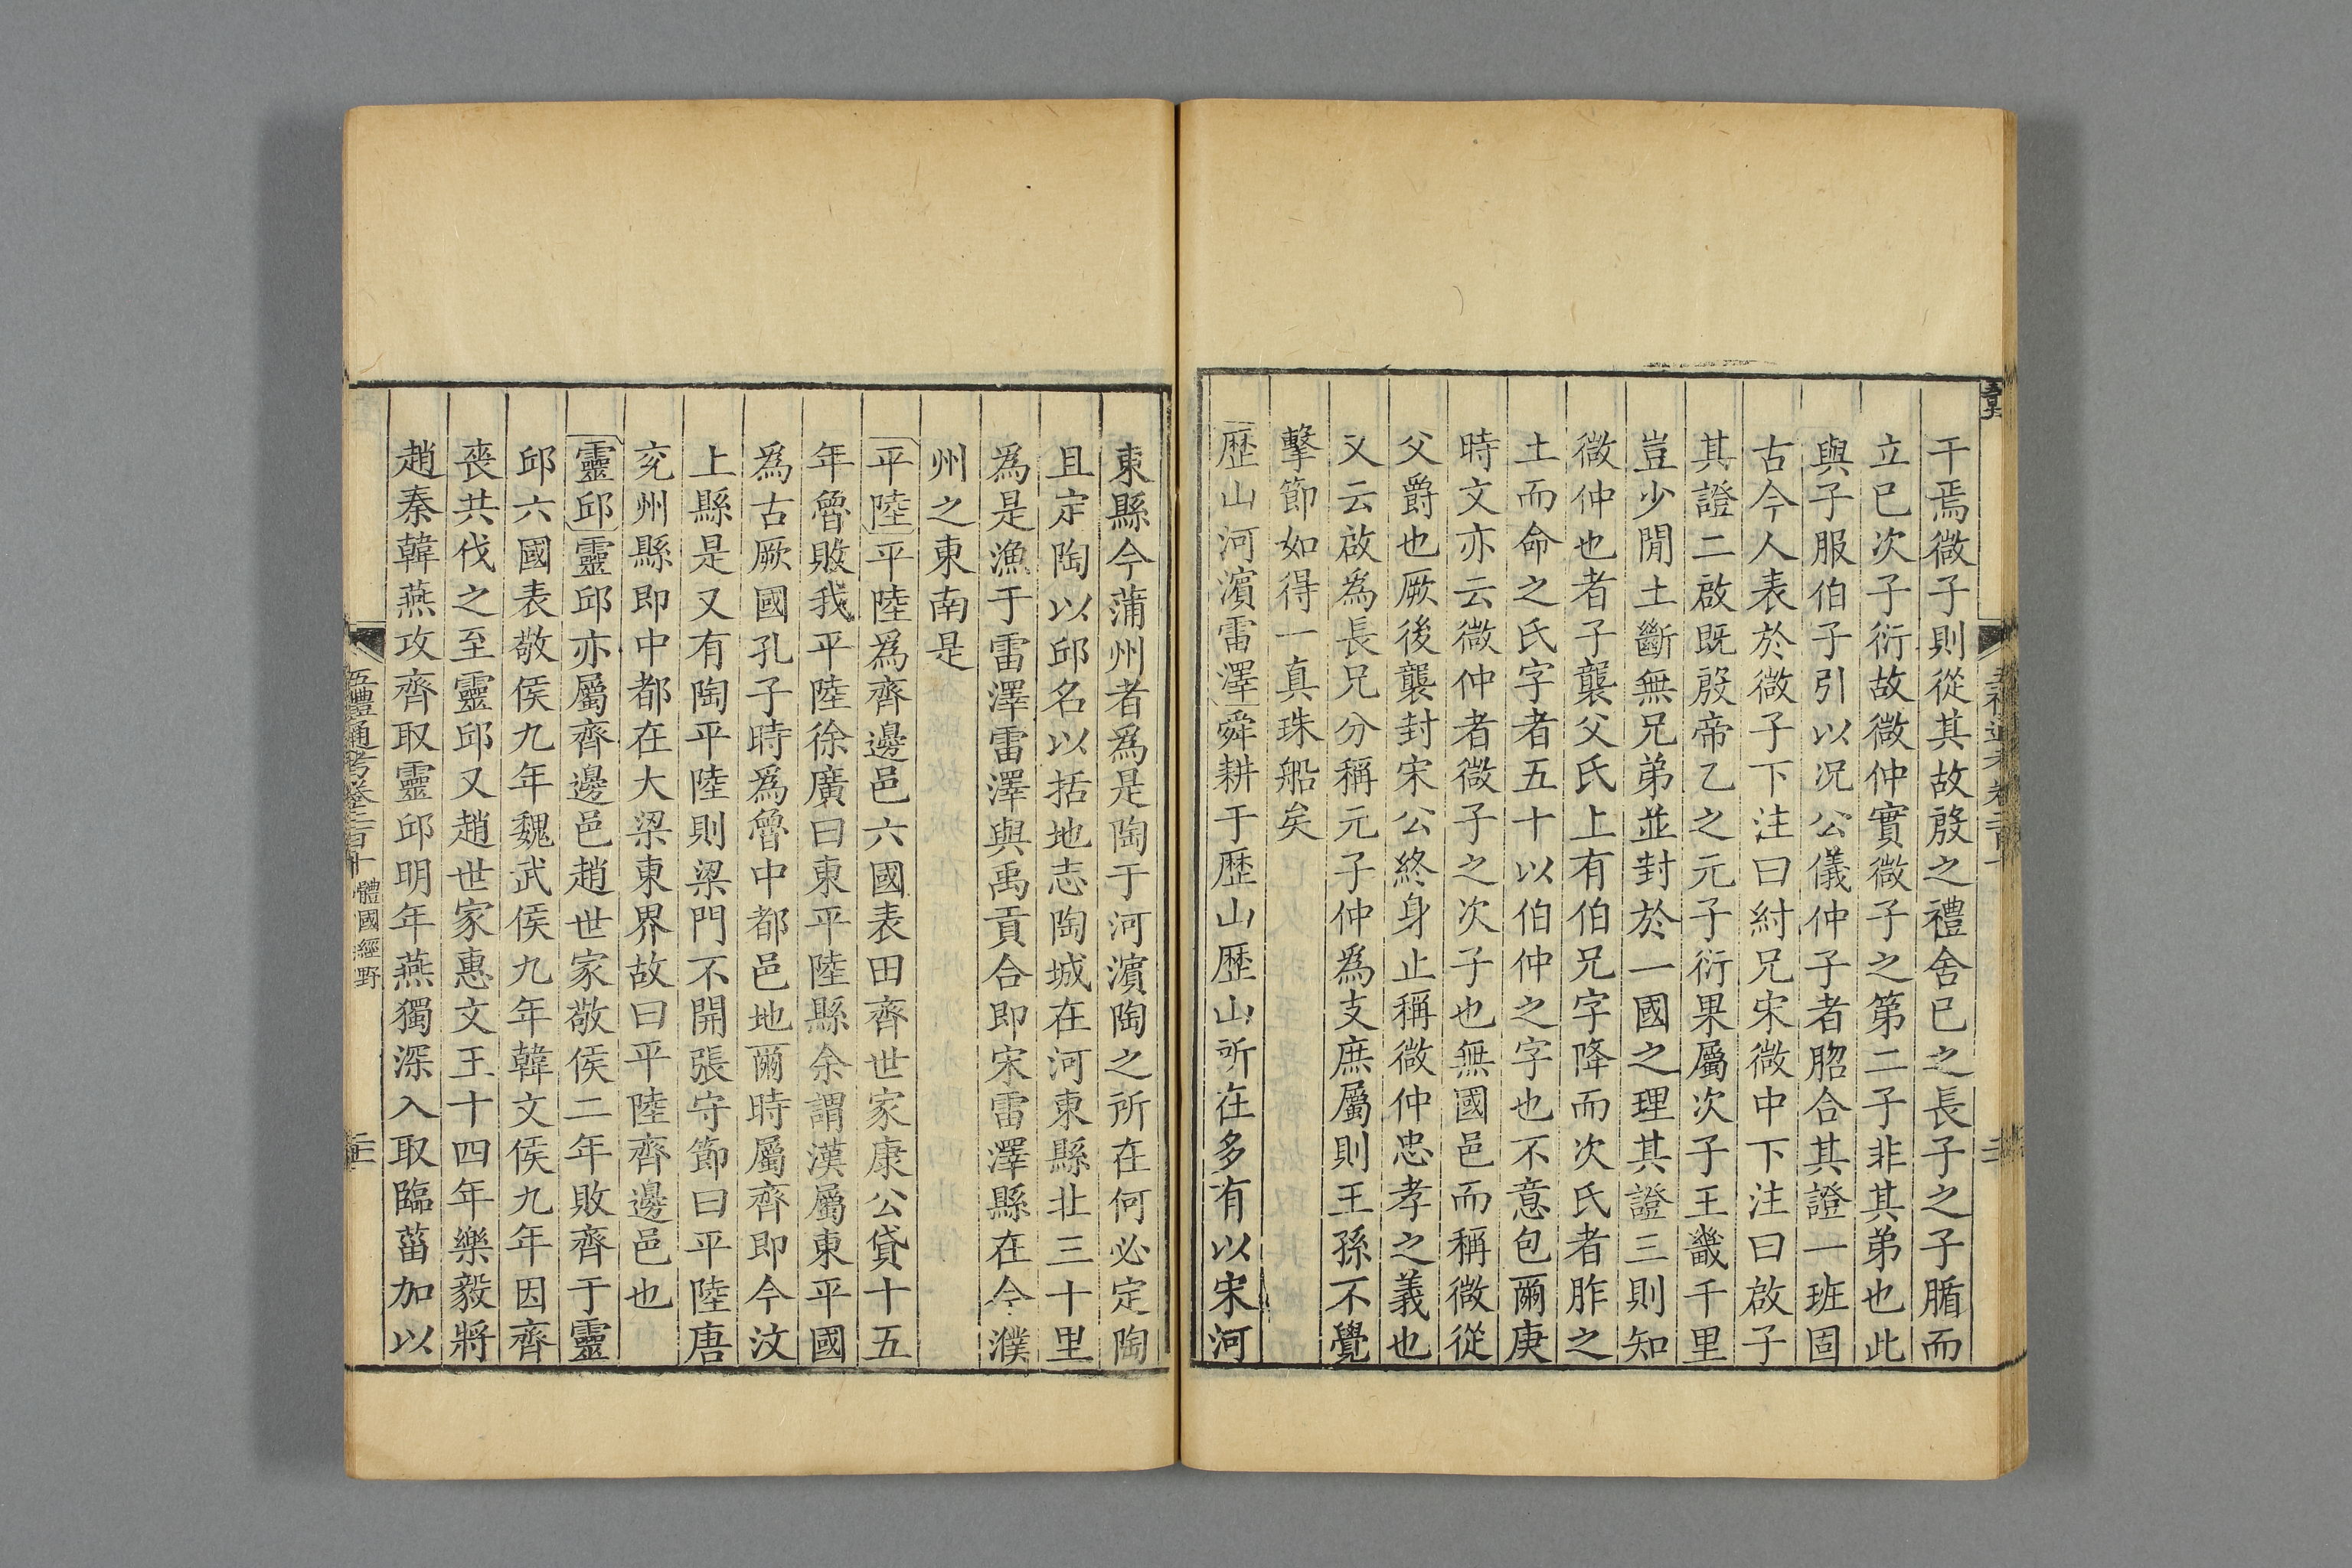 干焉微子則從其故殷之禮舍已之長子之子腯而
立已次子衍故微仲實微子之第二子非其弟也此
與子服伯子引以况公儀仲子者脗合其證一班固
古今人表於微子下注曰紂兄宋微中下注曰啟子
其證二啟既殷帝乙之元子衍果屬次子王畿千里
豈少閒土斷無兄弟並封於一國之理其證三則知
微仲也者子襲父氏上有伯兄字降而次氏者胙之
土而命之氏字者五十以伯仲之字也不意包爾庚
時文亦云微仲者微子之次子也無國邑而稱微從
父爵也厥後襲封宋公終身止稱微仲忠孝之義也
又云啟為長兄分稱元子仲為支庶屬則王孫不覺
擊節如得一真珠船矣
歷山河濵雷澤舜耕于歷山歷山所在多有以宋河
東縣今蒲州者爲是陶于河濵陶之所在何必定陶
且定陶以邱名以括地志陶城在河東縣北三十里
爲是漁于雷澤雷澤與禹貢合即宋雷澤縣在今濮
州之東南是
平陸平陸爲齊邊邑六國表田齊世家康公貸十五
年魯敗我平陸徐廣曰東平陸縣余謂漢屬東平國
爲古厥國孔子時爲魯中都邑地爾時屬齊即今汶
上縣是又有陶平陸則梁門不開張守節曰平陸唐
兖州縣即中都在大梁東界故曰平陸齊邊邑也
靈邱靈邱亦屬齊邊邑趙世家敬侯二年敗齊于靈
邱六國表敬侯九年魏武侯九年韓文侯九年因齊
喪共伐之至靈邱又趙世家惠文王十四年樂毅將
趙秦韓燕攻齊取靈邱明年燕獨深入取臨菑加以
五禮通考卷二百十 體國經野